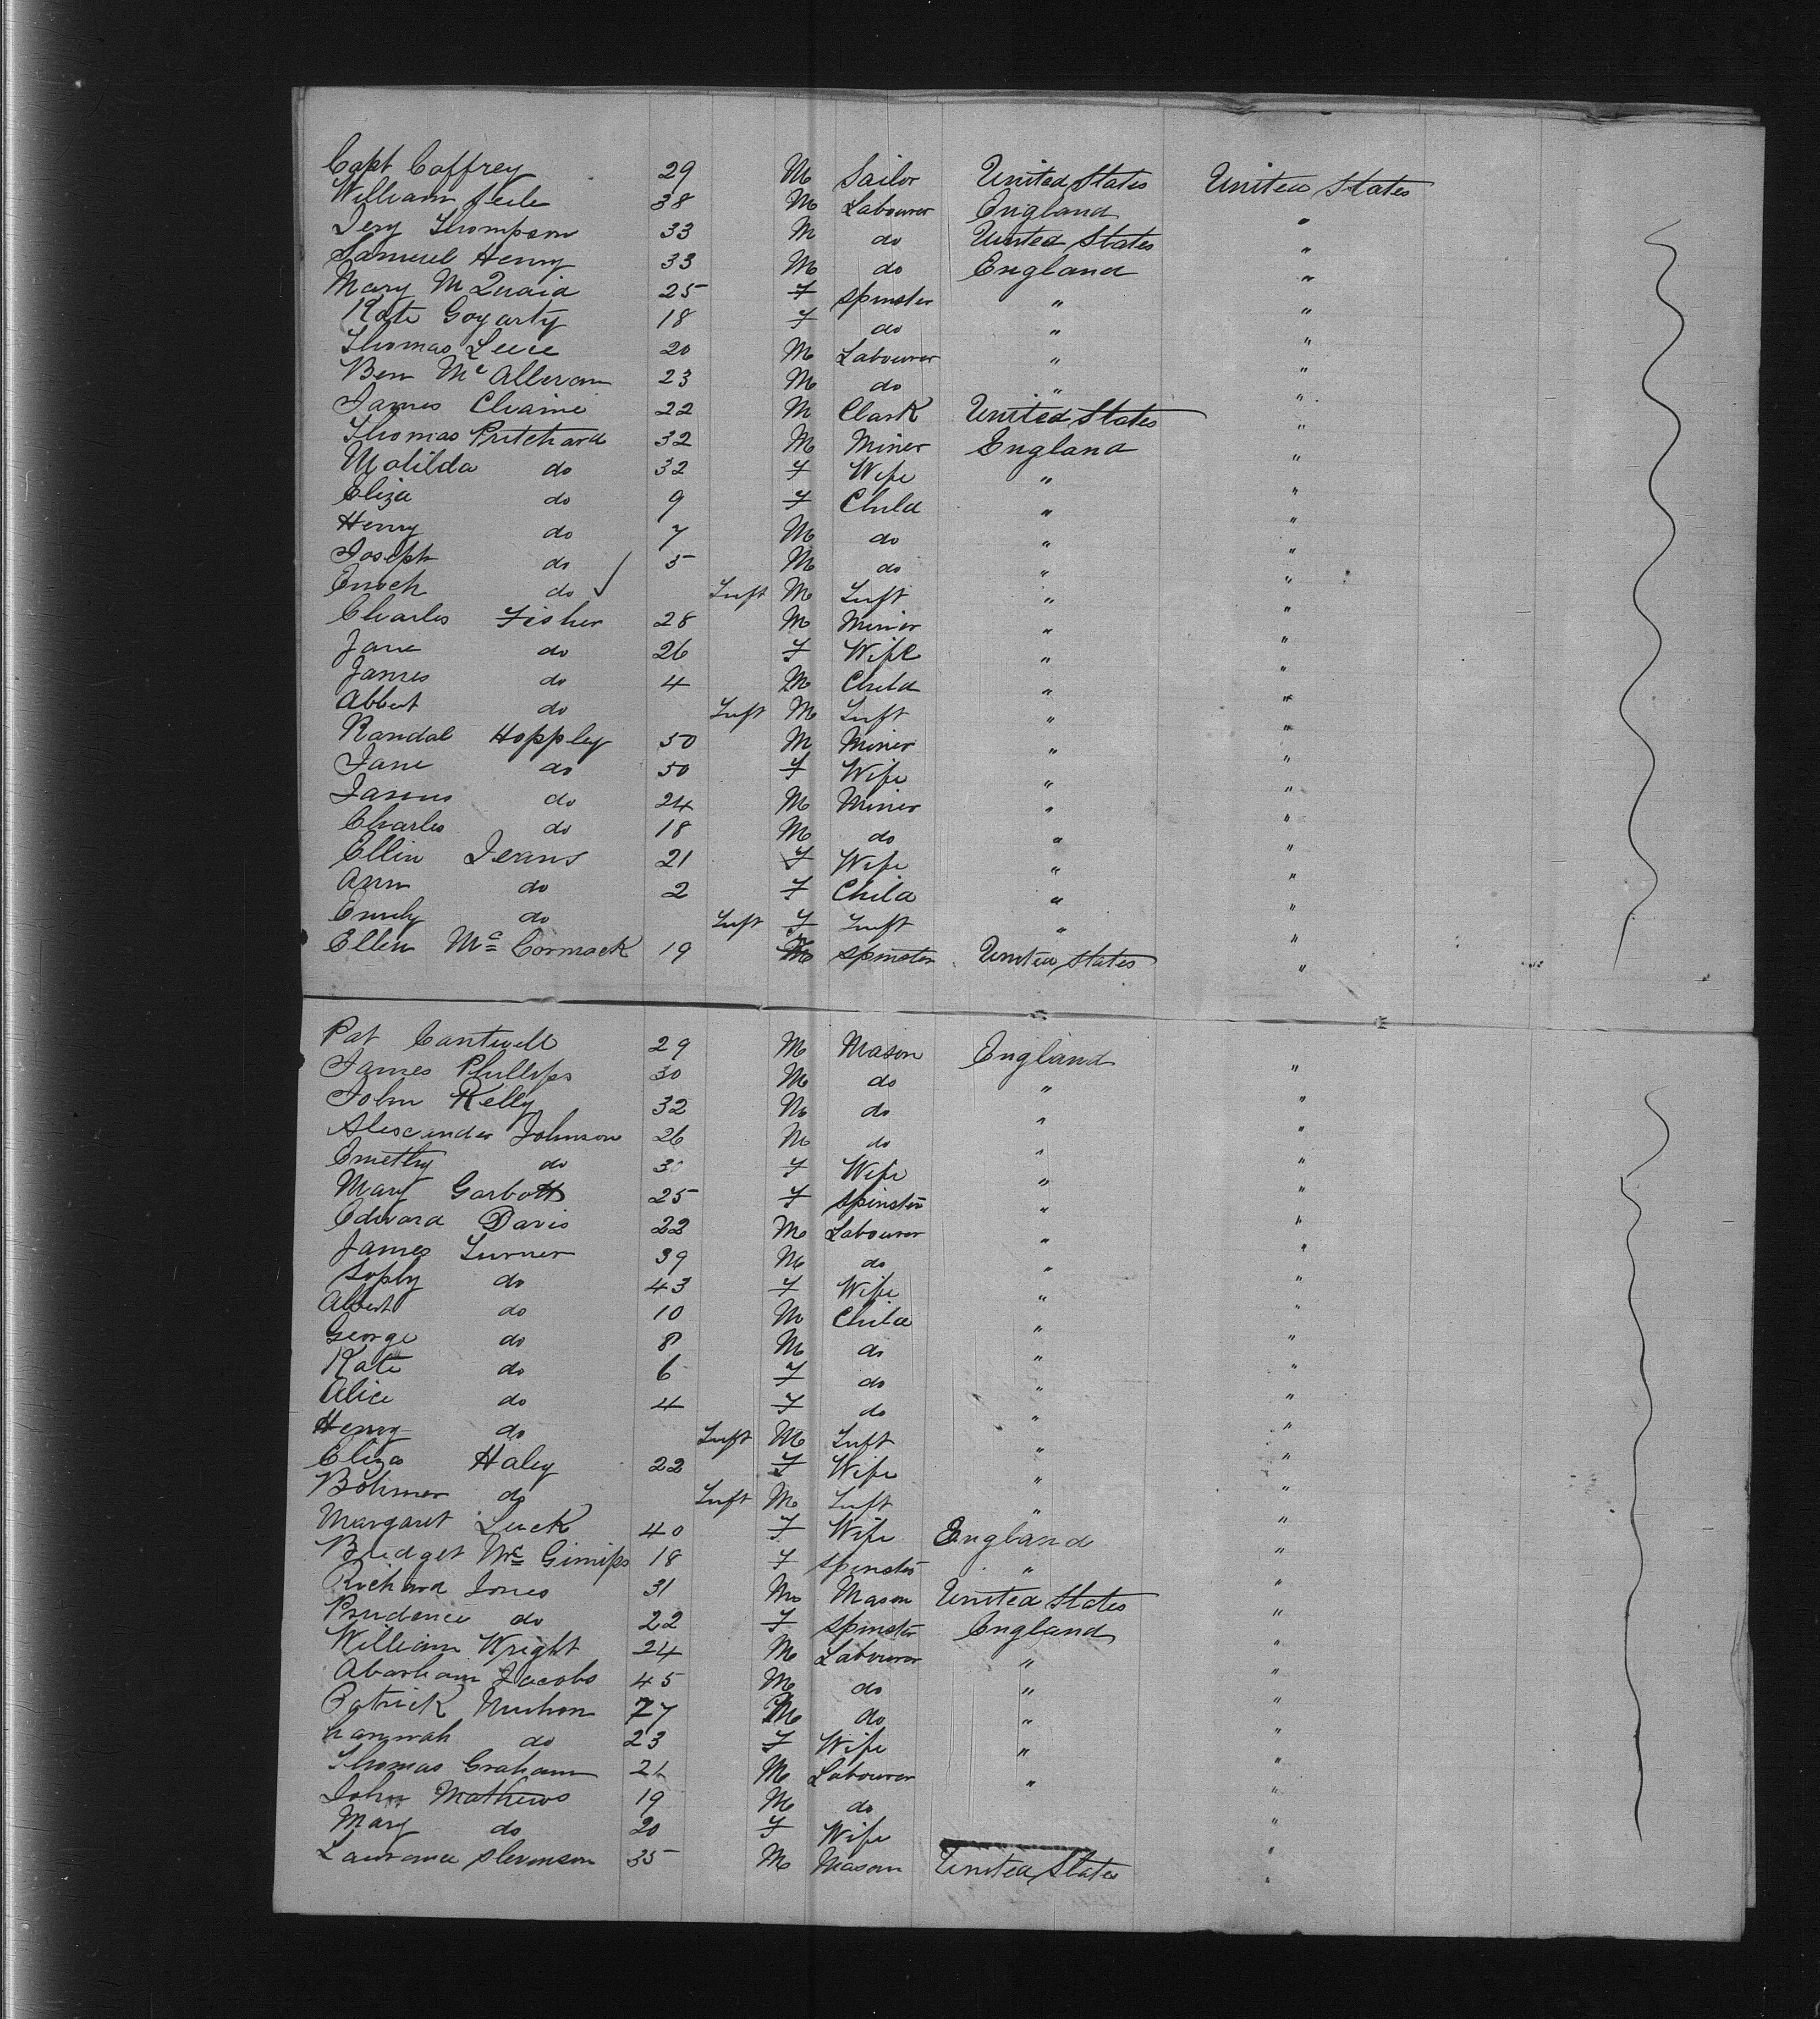 Capt Caffrey 29 M Sailor United States United States
William Seile 38 M Labourer England "
Jery Thompson 33 M do United States "
Samuel Henry 33 M do England "
Mary McQuaid 25 F Spinster " "
Kate Gogarty 18 F do " "
Thomas 20 M Labourer " "
Ben Mc Alleran 23 M do " "
James 22 M Clark United States "
Thomas Pritchard 32 M Miner England "
Matilda do 32 F Wife " "
Eliza do 9 F Child " "
Henry do 7 M do " "
Joseph do 5 M do " "
Enoch do Inft M Inft " "
Charles Fisher 28 M Miner " "
Jane do 26 F Wife " "
James do 4 M Child " "
Albert do Inft M Inft " "
Randal Hoppley 50 M Miner " "
Jane do 50 F Wife " "
James do 24 M Miner " "
Charles do 18 M do " "
Ellin Jeans 21 F Wife " "
Ann do 2 F Child " "
Emily do Inft F Inft " "
Ellen Mc Cormack 19 F Spinster United States "
Pat Cantwell 29 M Mason England "
James Phillips 30 M do " "
John Kelly 32 M do " "
Alexander Johnson 26 M do " "
do 30 F Wife " "
Mary Garbott 25 F Spinster " "
Edward Davis 22 M Labourer " "
James Turner 39 M do " "
Sophy do 43 F Wife " "
Albert do 10 M Child " "
George do 8 M do " "
Kate do 6 F do " "
Alice do 4 F do " "
Henry do Inft M Inft " "
Eliza Haley 22 F Wife " "
Bohmer do Inft M Inft " "
Margaret Luck 40 F Wife England "
Bridget Mc Ginnips 18 F Spinster " "
Richard Jones 31 M Mason United States "
Prudence do 22 F Spinster England "
William Wright 24 M Labourer " "
Abarham Jacobs 45 M do " "
Patrick 27 M do " "
hannah do 23 F Wife " "
Thomas Graham 24 M Labourer " "
John Mathews 19 M do "
Mary do 20 F Wife "
Laurance Stevenson 35 M Mason United States "